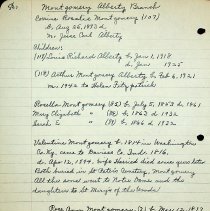 Montgomery Alberty Branch
Corine Rosalie Montgomery (107)
b. Aug 25, 1893 d.
m. Jesse Carl Alberty
Children:
(118) Louis Richard Alberty b. June 1, 1918
d. June 1925
(119) Arthur Montgomery Alberty b. Feb 6, 1921
m. 1942 to Helen Fitzpatrick
Rosella Montgomery b. July 5, 1853 d. 1861
Mary Elizabeth b. 1863 d. 1932
Sarah E b. 1866 d. 1922
Valentine Montgomery b. 1814 in Washington
Co Ky. came to Daviess Co. Ind. 1816
d. Apr 12, 1894. wife Harried died some years later
Both buried in St Peters Cemetery, Montgomery
All the sons went to Notre Dame and the
daughters to St Marys of the Woods
Rose Anna Montgomery b. Mar 12,